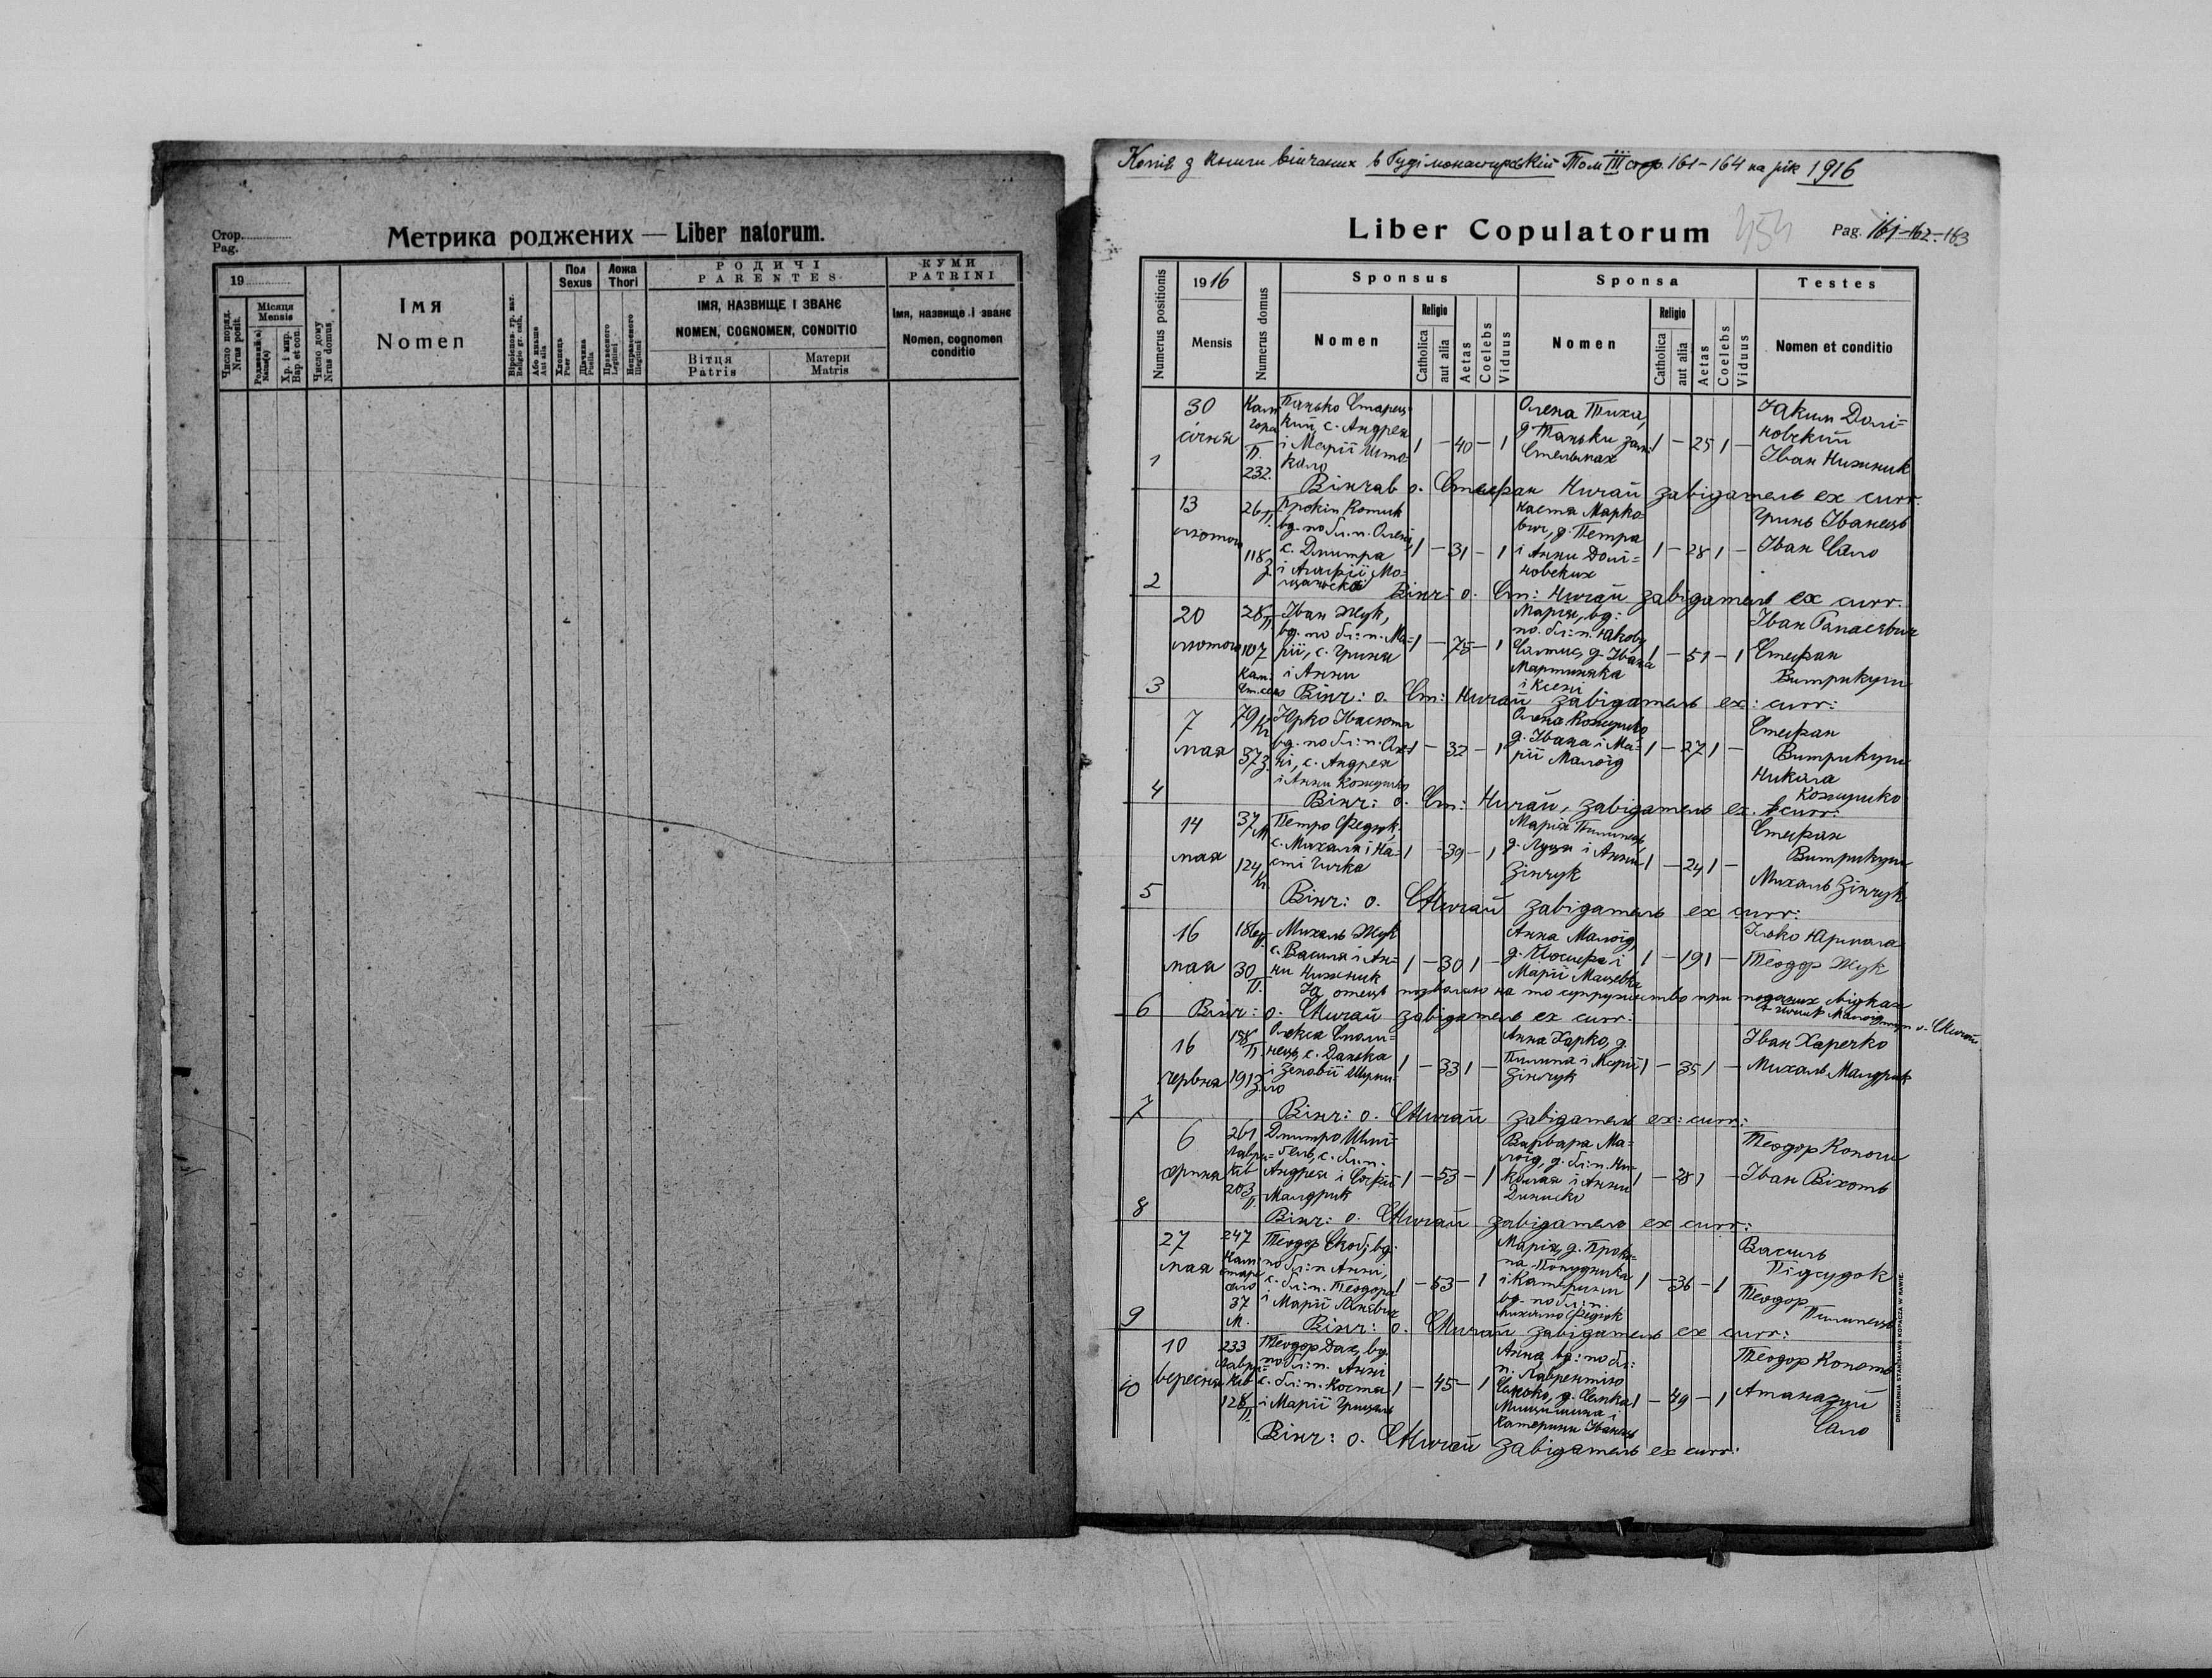 Стор.
Pag.
Метрика роджених — Liber natorum.
19
Число поряд.
Nrus posit.
Місяця
Mensis
Хр. і мир.
Bap. et con.
Число дому
Nrus domus
ІМЯ
Nomen
Або иньше
Aut alia
Пол
Sexus
Хлопець
Puer
Дївчина
Puella
Ложа
Thori
Правесного
Legitimi
Неправесного
Illegitimi
РОДИЧІ
PARENTES
ІМЯ, НАЗВИЩЕ І ЗВАНЄ
NOMEN, COGNOMEN, CONDITIO
Вітця
Patris
Матери
Matris
КУМИ
PATRINI
Імя, назвище і званє
Nomen, cognomen
conditio
Копія з книги вінчаних в Гуді монастирській Том III стор. 161-164 на рік 1916
Liber Copulatorum
454
Pag. 161-162-163
Numerus positionis
1916
Mensis
Numerus domus
Sponsus
Nomen
Religio
Catholica
aut alia
Aetas
Coelebs
Viduus
Sponsa
Nomen
Religio
Catholica
aut alia
Aetas
Coelebs
Viduus
Testes
Nomen et conditio
1
30
січня
Кам
гора
П.
232.
Панько Старец-
кий, с. Андрея
і Марії Што-
кало
1 - 40 - 1
Олена Тиха,
д. Таньки зам:
Стельмах
1 - 25 1 -
Яким Долї=
новский
Іван Нижник
Вінчав о. Стефан Ничай завідатель ex curr.
2
13
лютого
26 П.
118 З.
Прокіп Котик
вд. по бл. п. Олені,
с. Дмитра
1 - 31 - 1
Настя Марко-
вич, д. Петра
і Анни Долї=
новских
1 - 28 1 -
Гринь Іванець
Іван Сало
Вінч: о. Ст: Ничай завідатель ex curr.
3
20
лютого
28 П
107
Кам.
Ст. село
Іван Жук,
вд. по бл: п. Ма=
рії, с. Гриня
і Анни
1 - 75 - 1
Марія, вд:
по. бл: п. Якову
д. Івана
Мартиняка
і Ксені
1 - 51 - 1
Іван Панасевич
Стефан
Витрикуш
Вінч: о. Ст: Ничай завідатель ex: curr:
4
7
мая
79
37 З.
Юрко Івасюта
вд. по бл: п. Оле-
ні, с. Андрея
і Анни Кожушко
1 - 32 - 1
Олена Кожушко
д. Івана і Ма-
рії Малоїд
1 - 27 1 -
Стефан
Витрикуш
Никола
Кожушко
Вінч: о. Ст: Ничай, завідатель ex. curr:
5
14
мая
37 М
124
Петро Федюк,
с. Михаля і На=
сті Гичка
1 - 39 - 1
Марія Пилипець
д. Луця і Анни
Зінчук
1 - 24 1 -
Стефан
Витрикуш
Михаль Зінчук
Вінч: о. СНичай завідатель ex curr:
6
16
мая
186
30
П.
Михаль Жук
с. Василя і Ан-
ни Нижник
1 - 30 1 -
Анна Малоїд,
д. Йосифа і
Марії Мацевка
1 - 19 1 -
Ілько Юрчала
Теодор Жук
Я, отець позваляю на то супружество при поданих свідках
Вінч: о. СНичай завідатель ex curr:
7
16
червня
158
П.
191 З.
Олекса Споли=
нець, с. Данька
і Зеновії Шури-
ло
1 - 33 1 -
Анна Харко, д.
Пилипа і Марії
Зінчук
1 - 35 1 -
Іван Харечко
Михаль Мандрик
Вінч: о. СНичай завідатель ex: curr:
8
6
серпня
261
Лаври=
ків
203
П.
Дмитро Шкі=
бель, с. бл: п.
Андрея і Софії
Мандрик
1 - 53 - 1
Варвара Ма=
лоїд, д. бл: п. Ни-
колая і Анни
Диниско
1 - 28 1 -
Теодор Коноп
Іван Віхоть
Вінч: о. СНичай завідатель ex curr:
9
27
мая
247
Кам
старе
село
37
М.
Теодор Скоб, вд.
по бл: п Анні,
с. бл: п. Теодора
1 - 53 - 1
Марія, д. Проко-
па Попудника
і Катерини
вд. по бл: п.
Михайло Федюк
1 - 36 - 1
Василь
Підсудок
Теодор
Пилипець
Вінч: о. СНичай завідатель ex curr:
10
10
вересня
233
Лаври=
ків
128
П.
Теодор Дах, вд.
по бл: п. Анні
с. бл: п. Костя
і Марії Грицель
1 - 45 - 1
Анна, вд: по бл:
п. Лаврентію
д. Семка
Мищишина і
Катерини Іванець
1 - 49 - 1
Теодор Коноп
Атаназий
Сало
Вінч: о. СНичай завідатель ex curr:
DRUKARNIA STANISŁAWA KOPACZA W RAWIE.